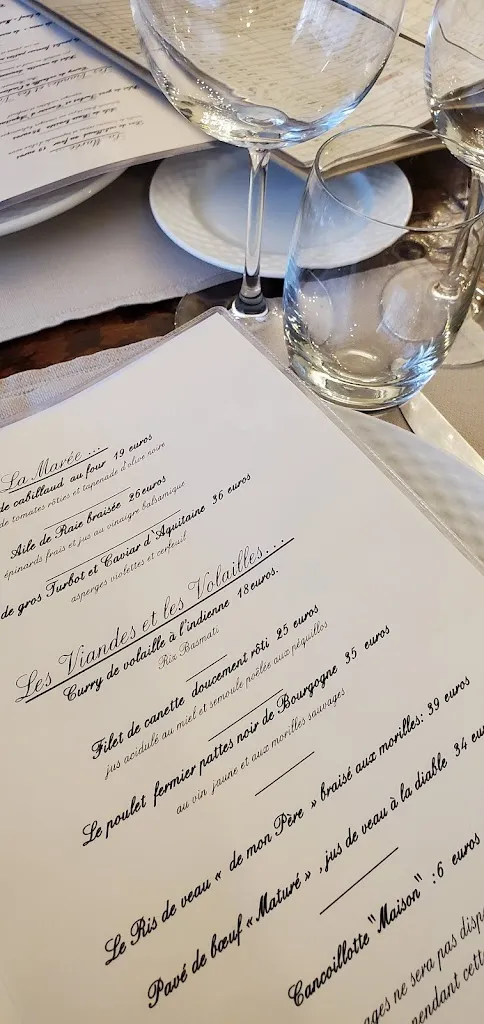 La Marée ...
de cabillaud au four 19 euros
de tomates rôties et tapenade d'olive noire
Aile de Raie braisée 26euros
épinards frais et jus au vinaigre balsamique
de gros Turbot et Caviar d'Aquitaine 36 euros
asperges violettes et cerfeuil
Les Viandes et les Volailles...
Curry de volaille à l'indienne 18euros.
Riz Basmati
Filet de canette doucement rôti 25 euros
jus acidulé au miel et semoule poêlée aux péquillos
Le poulet fermier pattes noir de Bourgogne 35 euros
au vin jaune et aux morilles sauvages
Le Ris de veau « de mon Père » braisé aux morilles: 39 euros
Pavé de bœuf «Maturé» , jus de veau à la diable 34 eu
Cancoillotte "Maison" :6 euros
ages ne sera pas disp
pendant cett